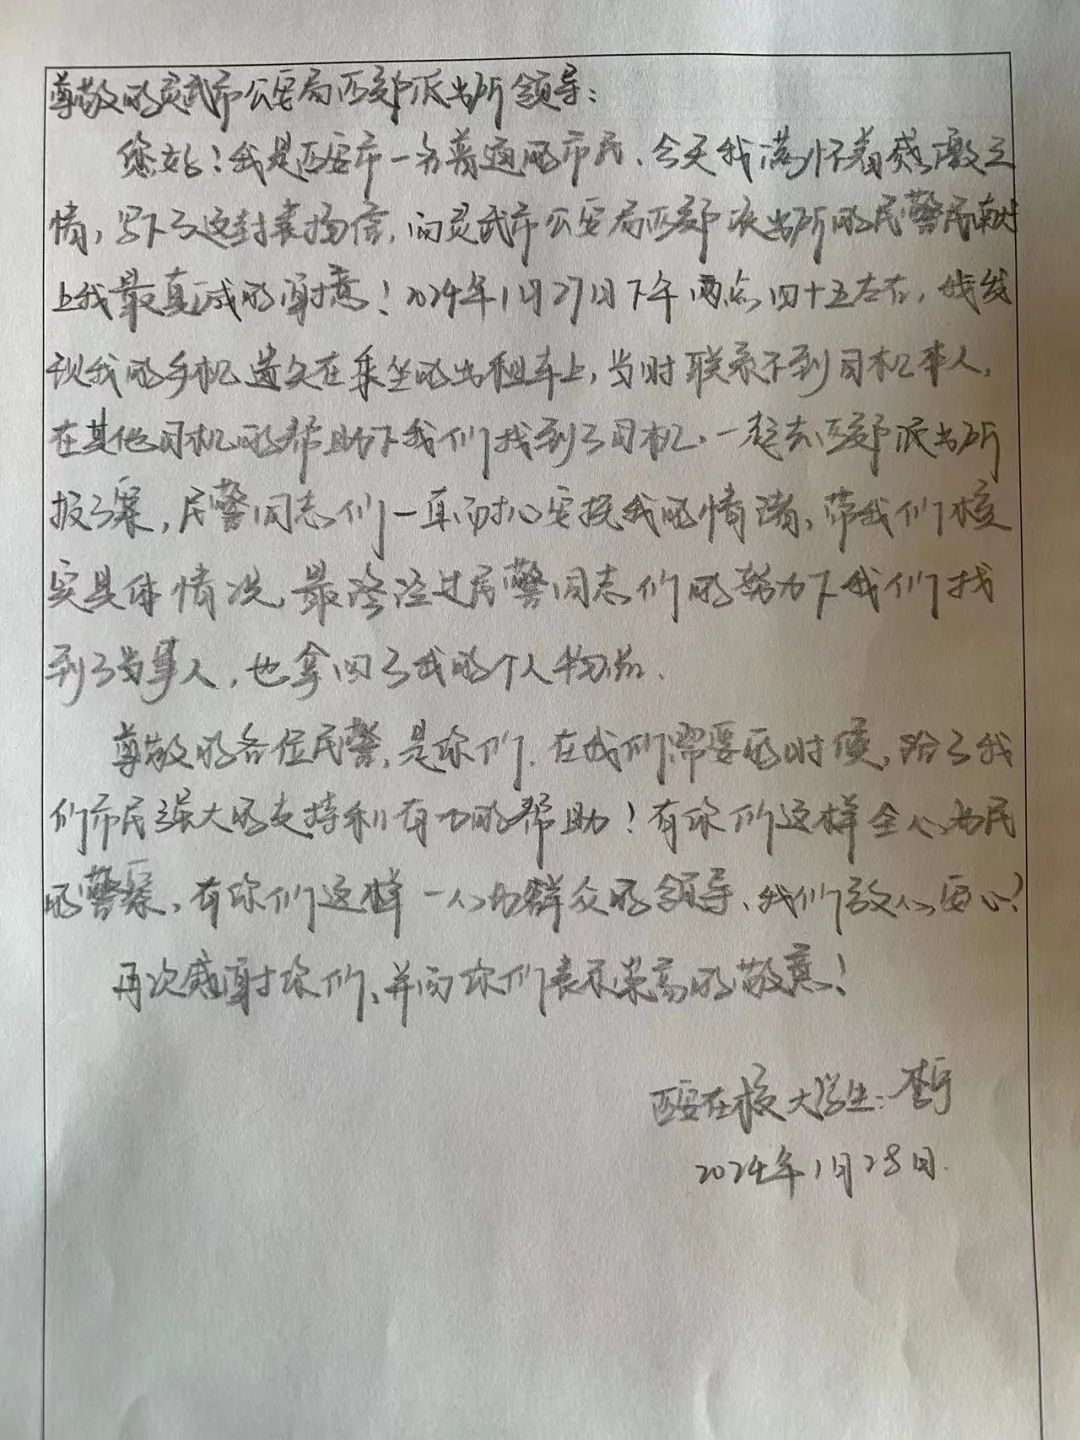 尊敬的灵武市公安局西郊派出所领导：
您好！我是西安市一名普通的市民、今天我满怀着感激之
情，写下了这封表扬信，向灵武市公安局西郊派出所的民警民献
上我最真诚的谢意！2024年1月27日下午两点四十五左右，我发
现我的手机遗失在乘坐的出租车上，当时联系不到司机本人，
在其他司机的帮助下我们找到了司机、一起去西郊派出所
报了案，民警同志们一直耐心安抚我的情绪、带我们核
实具体情况，最终经过民警同志们的努力下我们找
到了当事人，也拿回了我的个人物品.
尊敬的各位民警，是你们、在我们需要的时候，给了我
们市民强大的支持和有力的帮助！有你们这样全心为民
的警察，有你们这样一心为群众的领导、我们放心，安心！
再次感谢你们、并向你们表示崇高的敬意！
西安在校大学生：李宁
2024年1月28日.